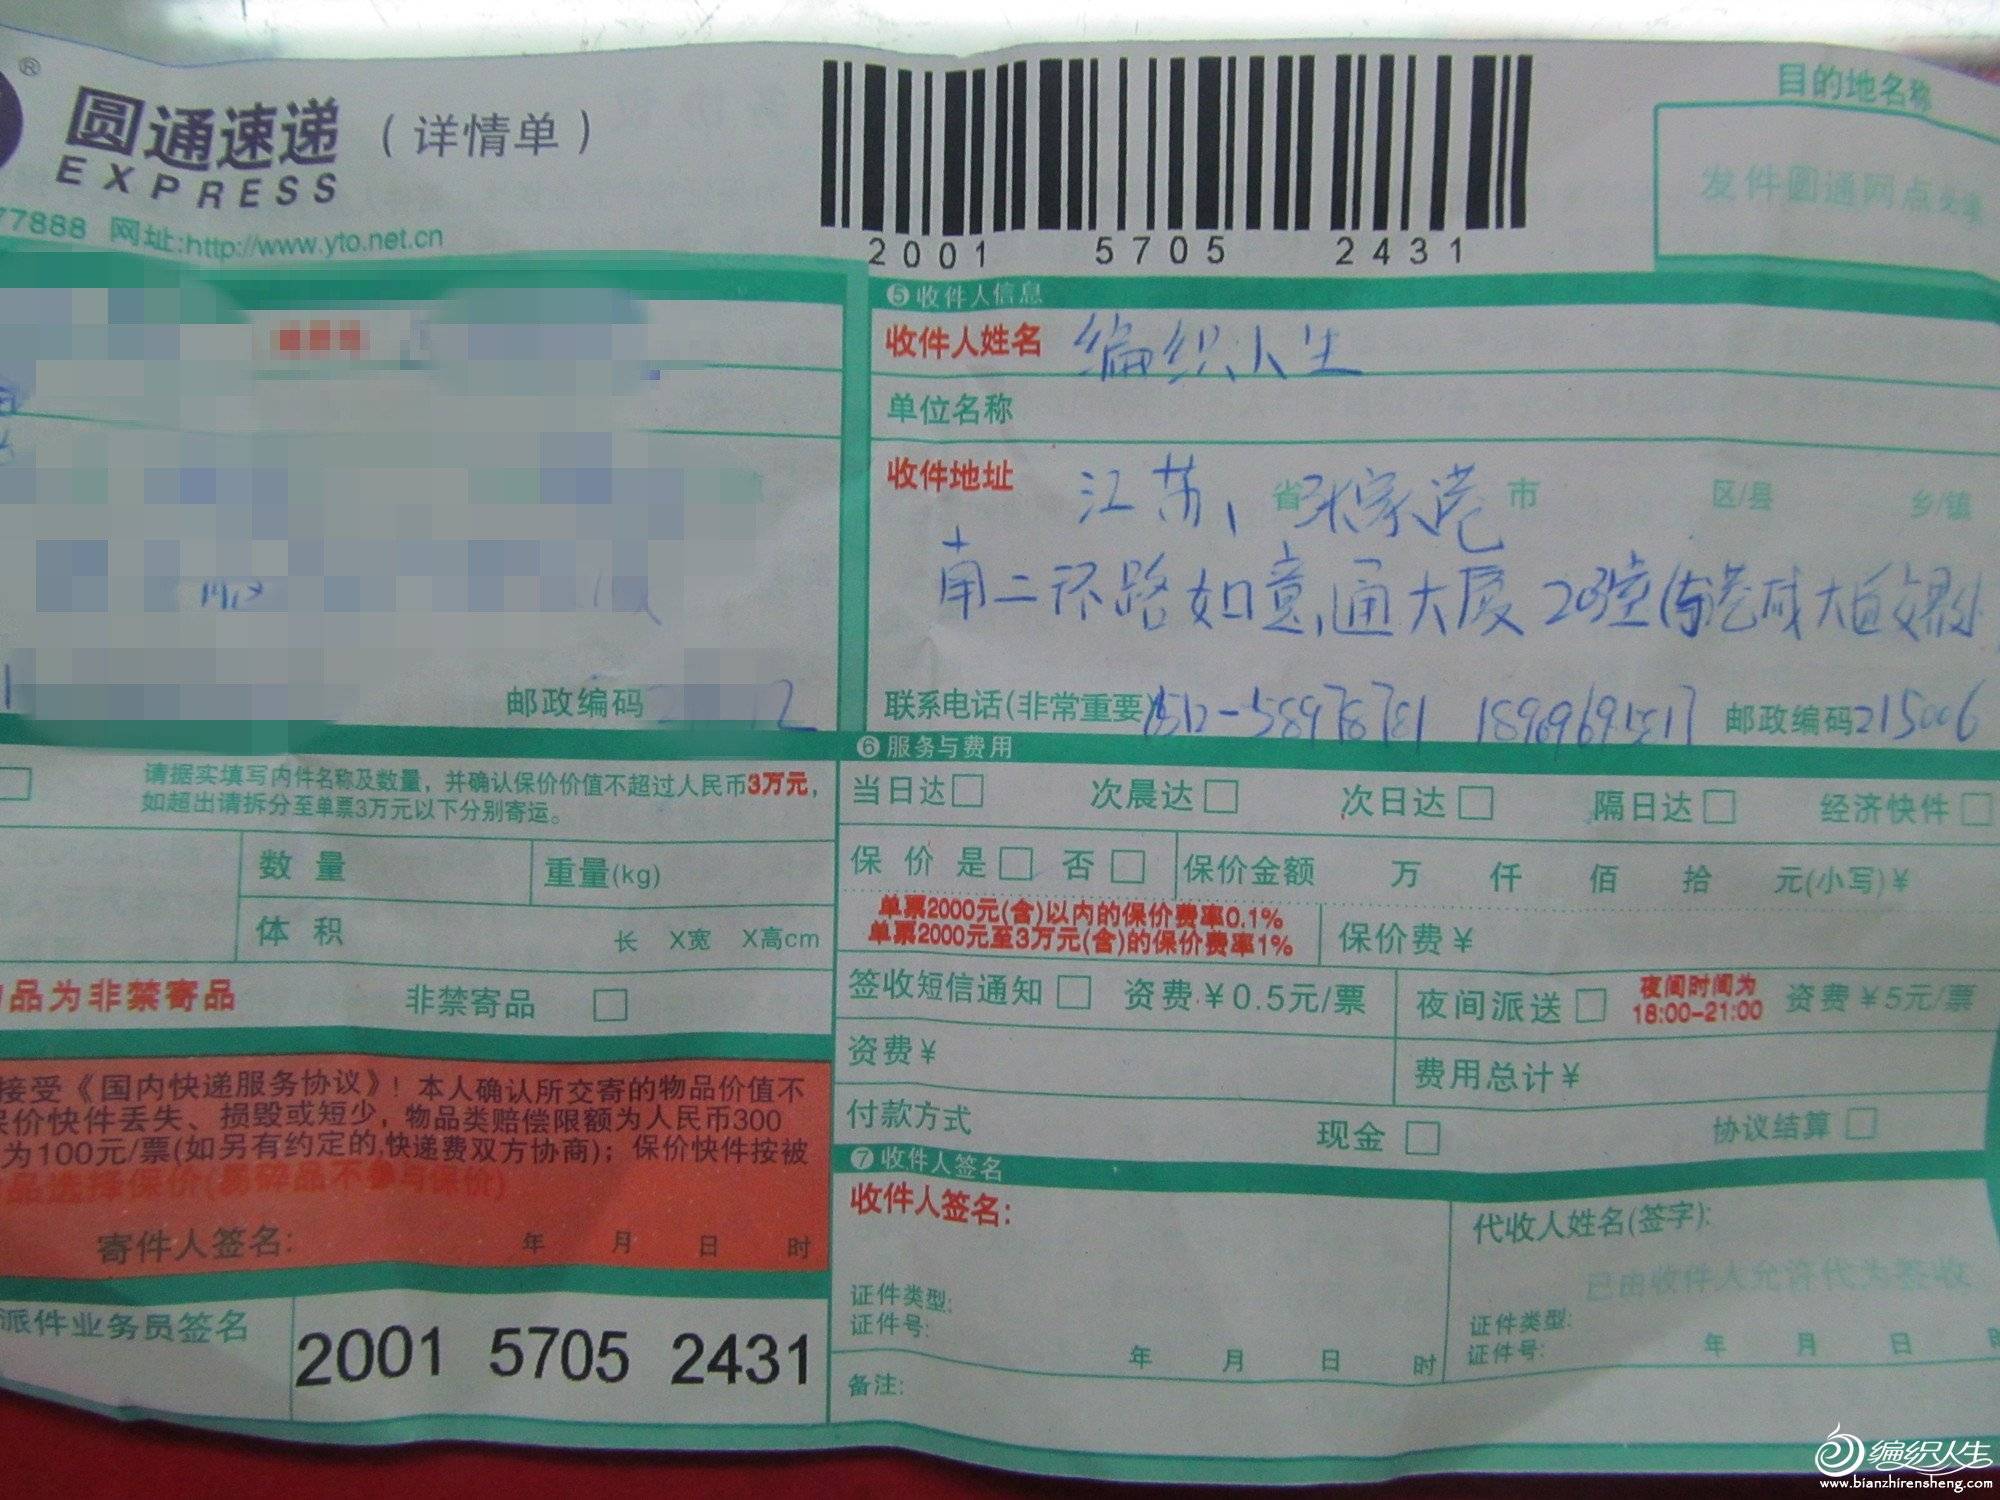 ®
圆通速递（详情单）
EXPRESS
77888 网址:http://www.yto.net.cn
2001 5705 2431
目的地名称
发件圆通网点
⑤收件人信息
收件人姓名 编织人生
单位名称
收件地址 江苏、省张家港市 区/县 乡/镇
南二环路如意通大厦203室
邮政编码
联系电话(非常重要) 0512-58978781 18969691517 邮政编码215006
⑥服务与费用
请据实填写内件名称及数量，并确认保价价值不超过人民币3万元，
如超出请拆分至单票3万元以下分别寄运。
当日达□ 次晨达□ 次日达□ 隔日达□ 经济快件□
数量 重量(kg)
保价 是□ 否□ 保价金额 万 仟 佰 拾 元(小写)¥
体积 长 X宽 X高cm
单票2000元(含)以内的保价费率0.1%
单票2000元至3万元(含)的保价费率1%
保价费¥
品为非禁寄品 非禁寄品 □
签收短信通知□ 资费¥0.5元/票 夜间派送□ 夜间时间为
18:00-21:00 资费¥5元/票
资费¥ 费用总计¥
付款方式 现金□ 协议结算□
接受《国内快递服务协议》！本人确认所交寄的物品价值不
保价快件丢失、损毁或短少，物品类赔偿限额为人民币300
为100元/票(如另有约定的,快递费双方协商)；保价快件按被
品选择保价(易碎品不参与保价)
寄件人签名: 年 月 日 时
⑦收件人签名
收件人签名: 代收人姓名(签字):
已由收件人允许代为签收
证件类型: 证件类型:
证件号: 证件号:
年 月 日 时 年 月 日 时
备注:
派件业务员签名 2001 5705 2431
编织人生
www.bianzhirensheng.com